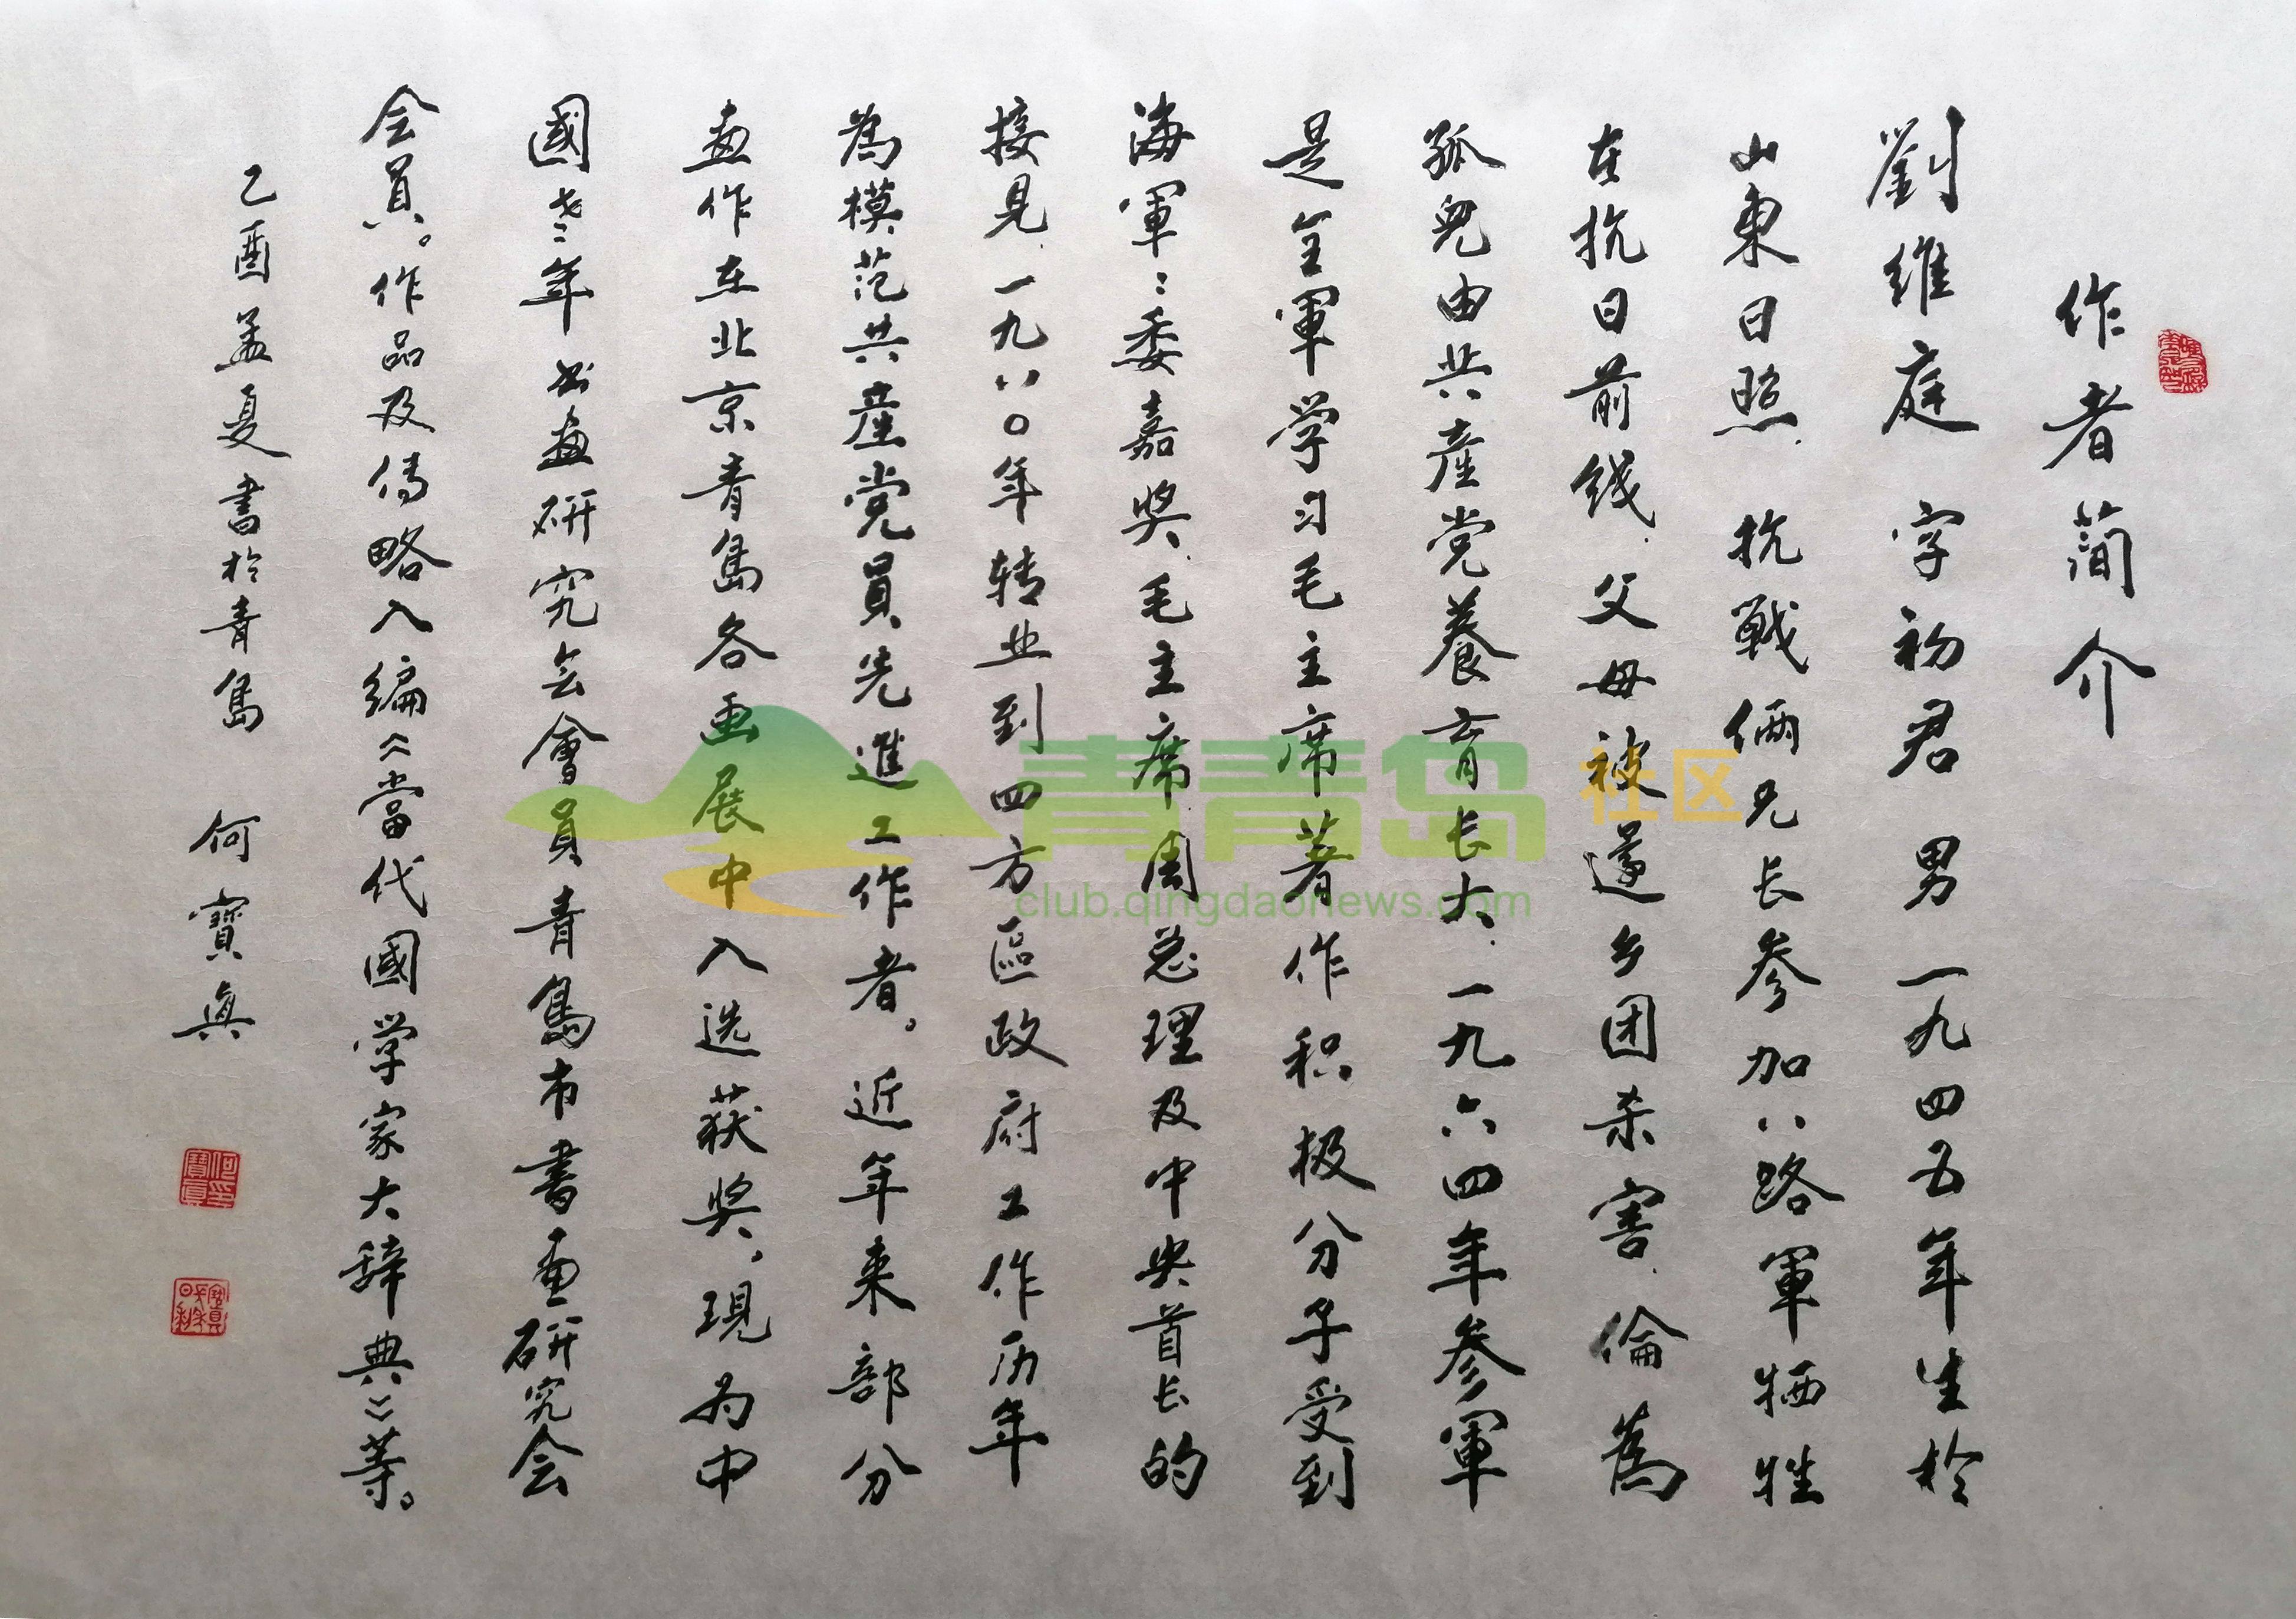 作者简介
劉維庭 字初君 男 一九四五年生於
山東日照.抗戰俩兄长参加八路軍牺牲
在抗日前线.父母被遂乡团杀害.倫為
孤兒由共產党養育长大.一九六四年参軍
是全軍学习毛主席著作积极分子受到
海軍:委嘉奖.毛主席周总理及中央首长的
接見.一九八〇年转业到四方區政府工作历年
為模范共產党員先進工作者。近年来部分
畫作在北京青島各画展中入选获奖,現为中
國老年书畫研究会會員青島市書画研究会
会員。作品及传略入编《當代國学家大辞典》等。
乙酉孟夏書於青島 何寶真
何寶真印
青青岛社区
club.qingdaonews.com